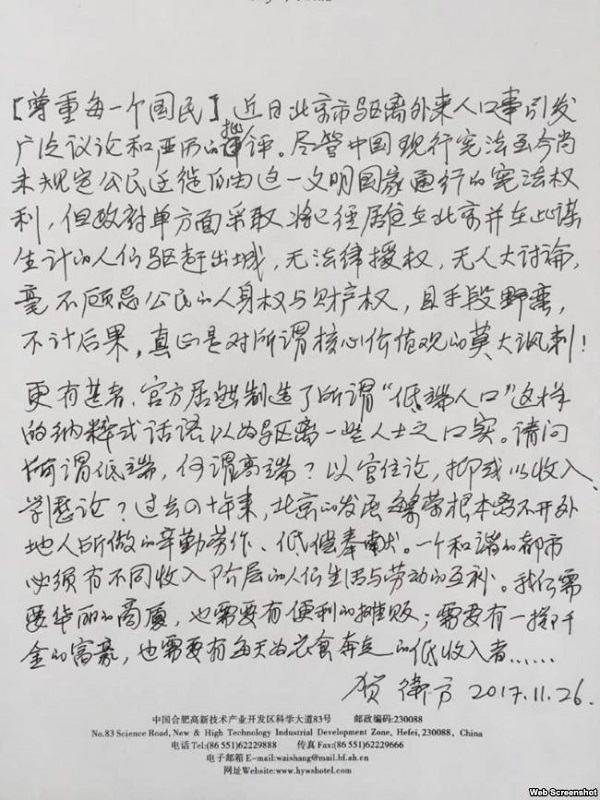 【尊重每一个国民】近日北京市驱离外来人口事引发
广泛议论和严厉的批评。尽管中国现行宪法至今尚
未规定公民迁徙自由这一文明国家通行的宪法权
利，但政府单方面采取将已经居住在北京并在此谋
生计的人们驱赶出城，无法律授权，无人大讨论，
毫不顾忌公民的人身权与财产权，且手段野蛮，
不计后果，真正是对所谓核心价值观的莫大讽刺！
更有甚者，官方居然制造了所谓“低端人口”这样
的纳粹式话语以为驱离一些人士之口实。请问
何谓低端，何谓高端？以官位论，抑或以收入、
学历论？过去四十年来，北京的发展繁荣根本离不开外
地人所做的辛勤劳作、低偿奉献。一个和谐的都市
必须有不同收入阶层的人们生活与劳动的互补。我们需
要华丽的商厦，也需要有便利的摊贩；需要有一掷千
金的富豪，也需要有每天为衣食奔走的低收入者……
贺衛方 2017.11.26.
中国合肥高新技术产业开发区科学大道83号 邮政编码:230088
No.83 Science Road, New & High Technology Industrial Development Zone, Hefei, 230088, China
电话Tel:(86 551)62229888 传真Fax:(86 551)62229666
电子邮箱E-mail:waishang@mail.hf.ah.cn
网址Website:www.hywshotel.cn
Web Screenshot